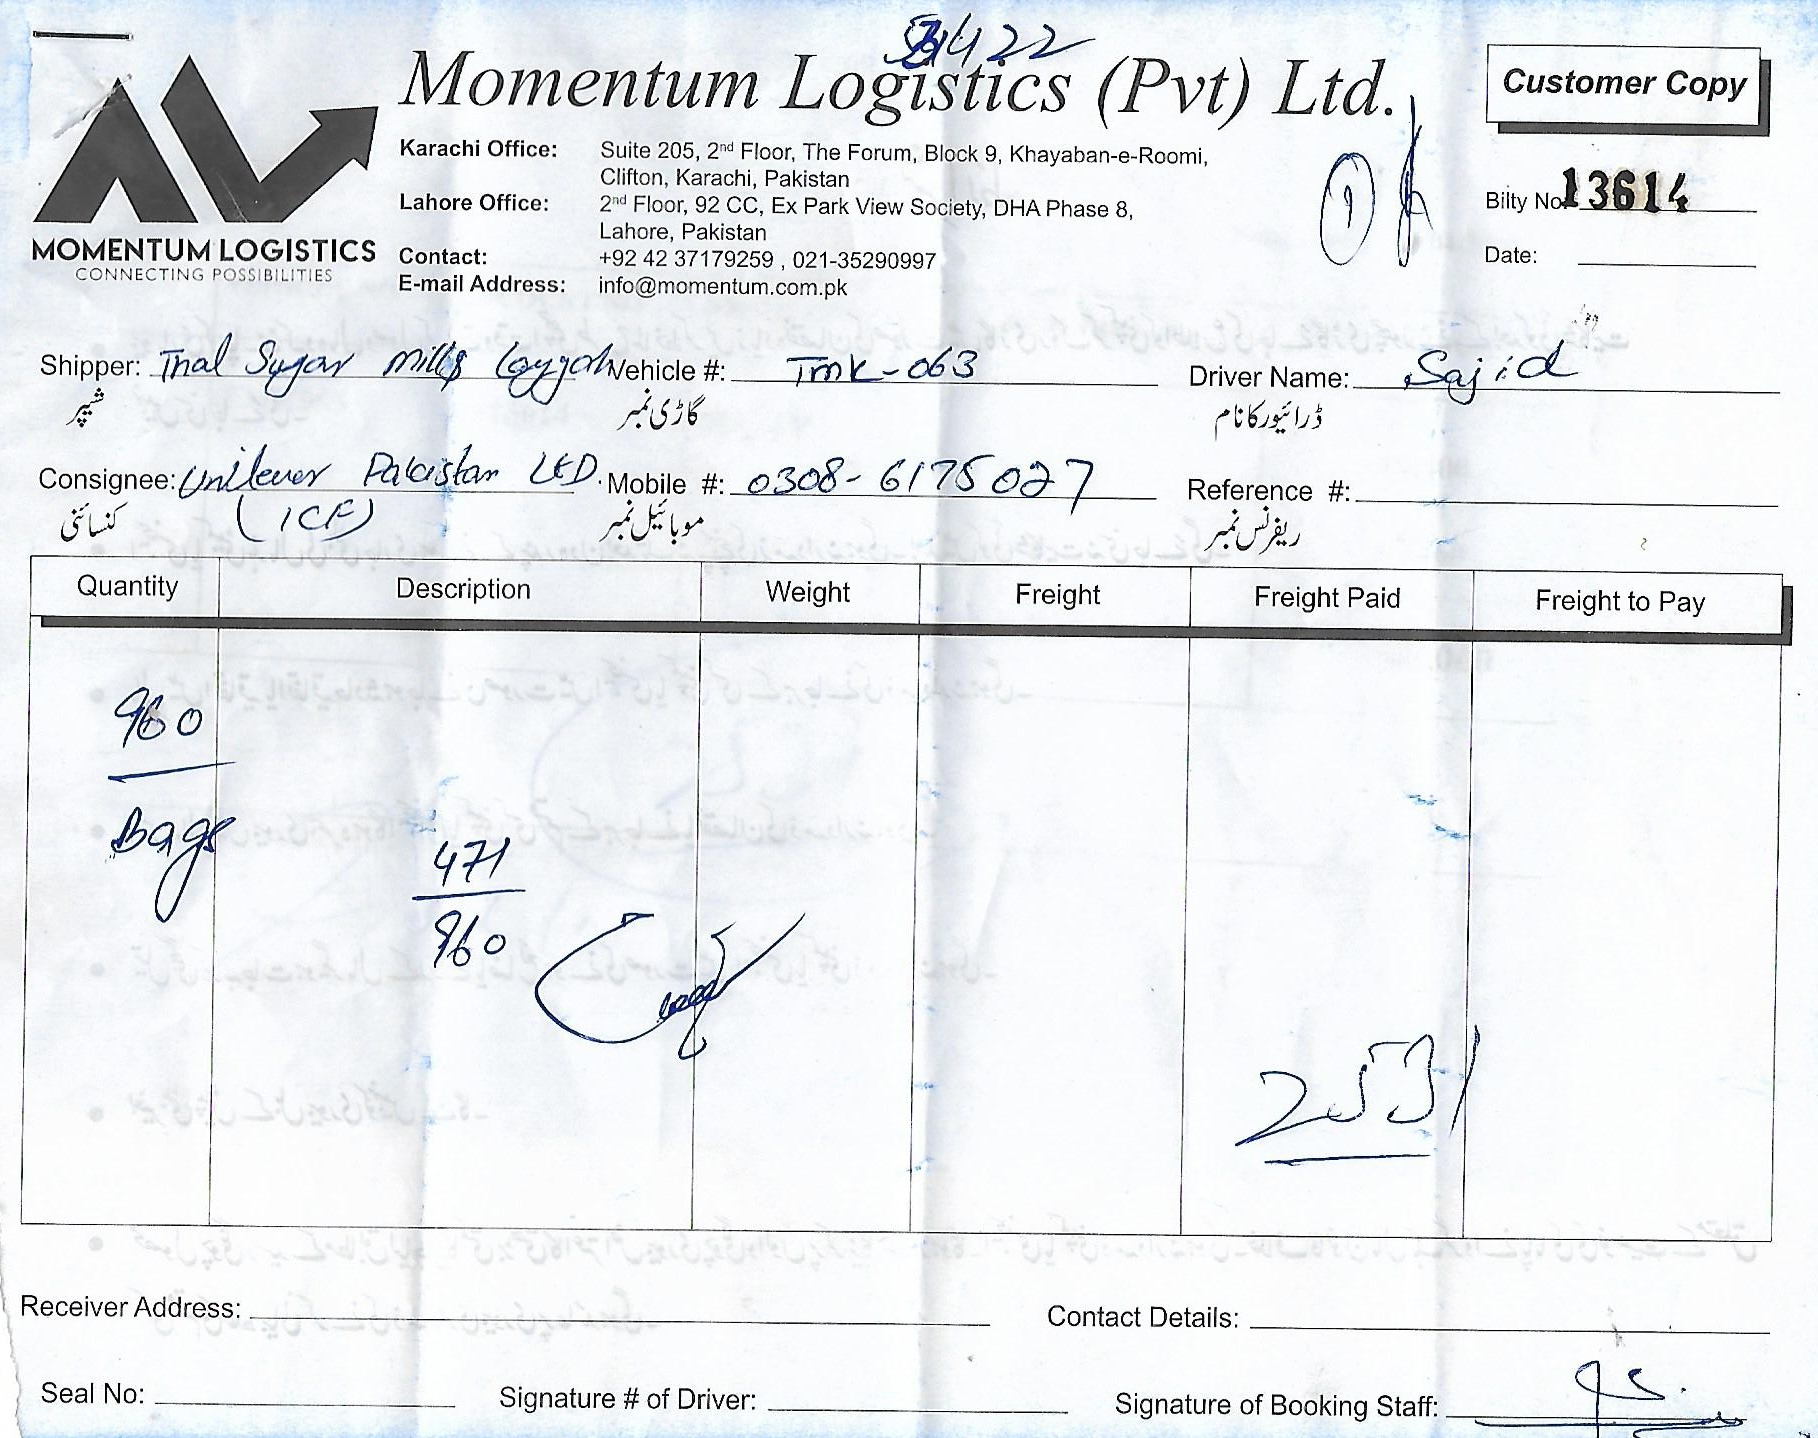 Momentum Logistics (Pvt) Ltd.
Customer Copy
MOMENTUM LOGISTICS
CONNECTING POSSIBILITIES
Karachi Office: Suite 205, 2nd Floor, The Forum, Block 9, Khayaban-e-Roomi,
Clifton, Karachi, Pakistan
Lahore Office: 2nd Floor, 92 CC, Ex Park View Society, DHA Phase 8,
Lahore, Pakistan
Contact: +92 42 37179259 , 021-35290997
E-mail Address: info@momentum.com.pk
1
Bilty No. 13614
Date:
Shipper: Thal Sugar Mills Layyah Vehicle #: TMK-063 Driver Name: Sajid
شپپر گاڑی نمبر ڈرائیور کا نام
Consignee: Unilever Pakistan LTD. Mobile #: 0308-6175027 Reference #:
(ICF)
کنسائنی موبائیل نمبر ریفرنس نمبر
Quantity Description Weight Freight Freight Paid Freight to Pay
960
Bags
471
960
2531
Receiver Address: Contact Details:
Seal No: Signature # of Driver: Signature of Booking Staff: